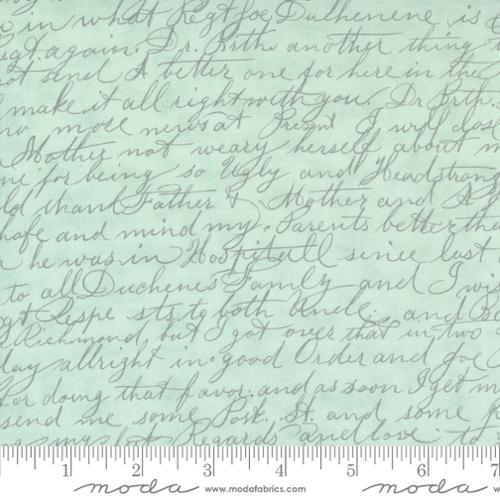 in what Regt Joe Duchenene is
Regt again. Dr. Brthr another thing
not send A better one for here in the
make it all right with you. Dr Brther
no more news at Present I will close
Mother not weary herself about m
me for being so Ugly and Headstrong
ld thank Father & Mother and A
hafe and mind my Parents better tha
he was in Hospitall since last
to all Duchenes Family and I wis
Respe sts to both Uncle and
Richmond but I got over that in two
day allright in good Order and Joe
for doing that favor. and as soon I get m
send me some Post. St. and some
my best Regards and love to
1 2 3 4 5 6 7
moda www.modafabrics.com moda www.modafabrics.com moda w